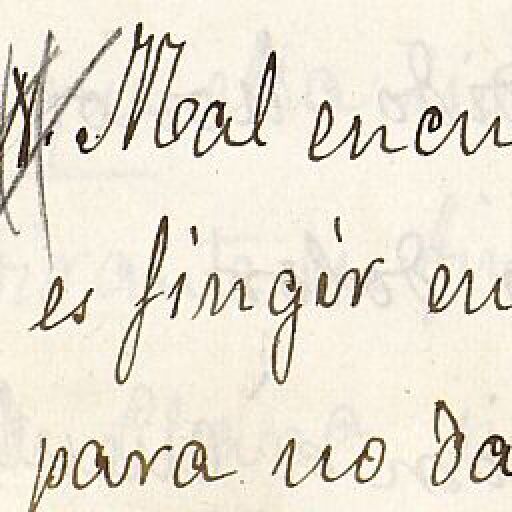 Mal encu
es fingir en
para no da